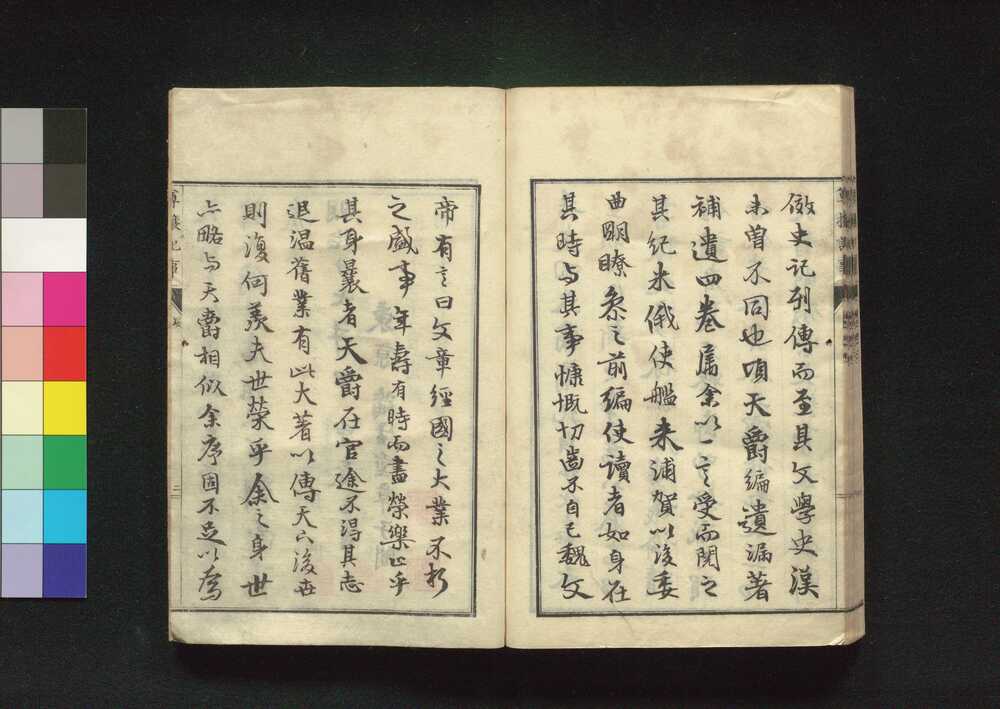 倣史記列傳而至其文學史漢
未曽不同也頃天爵編遺漏著
補遺四巻属余以一言受而閲之
其紀米俄使艦来浦賀以後委
曲明瞭参之前編使讀者如身在
其時与其事慷慨切齒不自已魏文
帝有言曰文章經國之大業不朽
之盛事年壽有時而盡榮樂止乎
其身曩者天爵在官途不得其志
退温舊業有此大著以傳天下後世
則復何羨夫世榮乎余之身世
亦略与天爵相似余序固不足以為